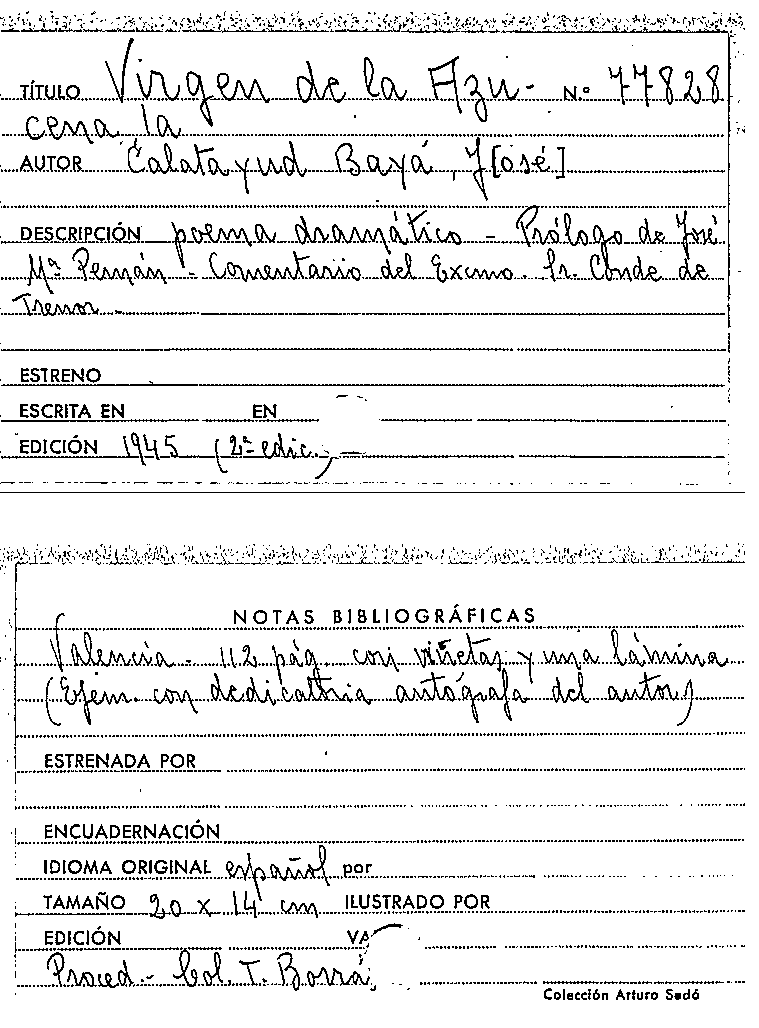 TÍTULO Virgen de la Azu- N.º 77828
cena, la
AUTOR Calatayud Bayá, J[osé]
DESCRIPCIÓN poema dramático - Prólogo de José
Mª Pemán - Comentario del Excmo. Sr. Conde de
Trenor -
ESTRENO
ESCRITA EN EN
EDICIÓN 1945 (2ª edic.) -
NOTAS BIBLIOGRÁFICAS
Valencia - 112 pág. con viñetas y una lámina
(Ejem. con dedicatoria autógrafa del autor)
ESTRENADA POR
ENCUADERNACIÓN
IDIOMA ORIGINAL español por
TAMAÑO 20 x 14 cm ILUSTRADO POR
EDICIÓN VA
Proced.- Col. T. Borrá
Colección Arturo Sedó